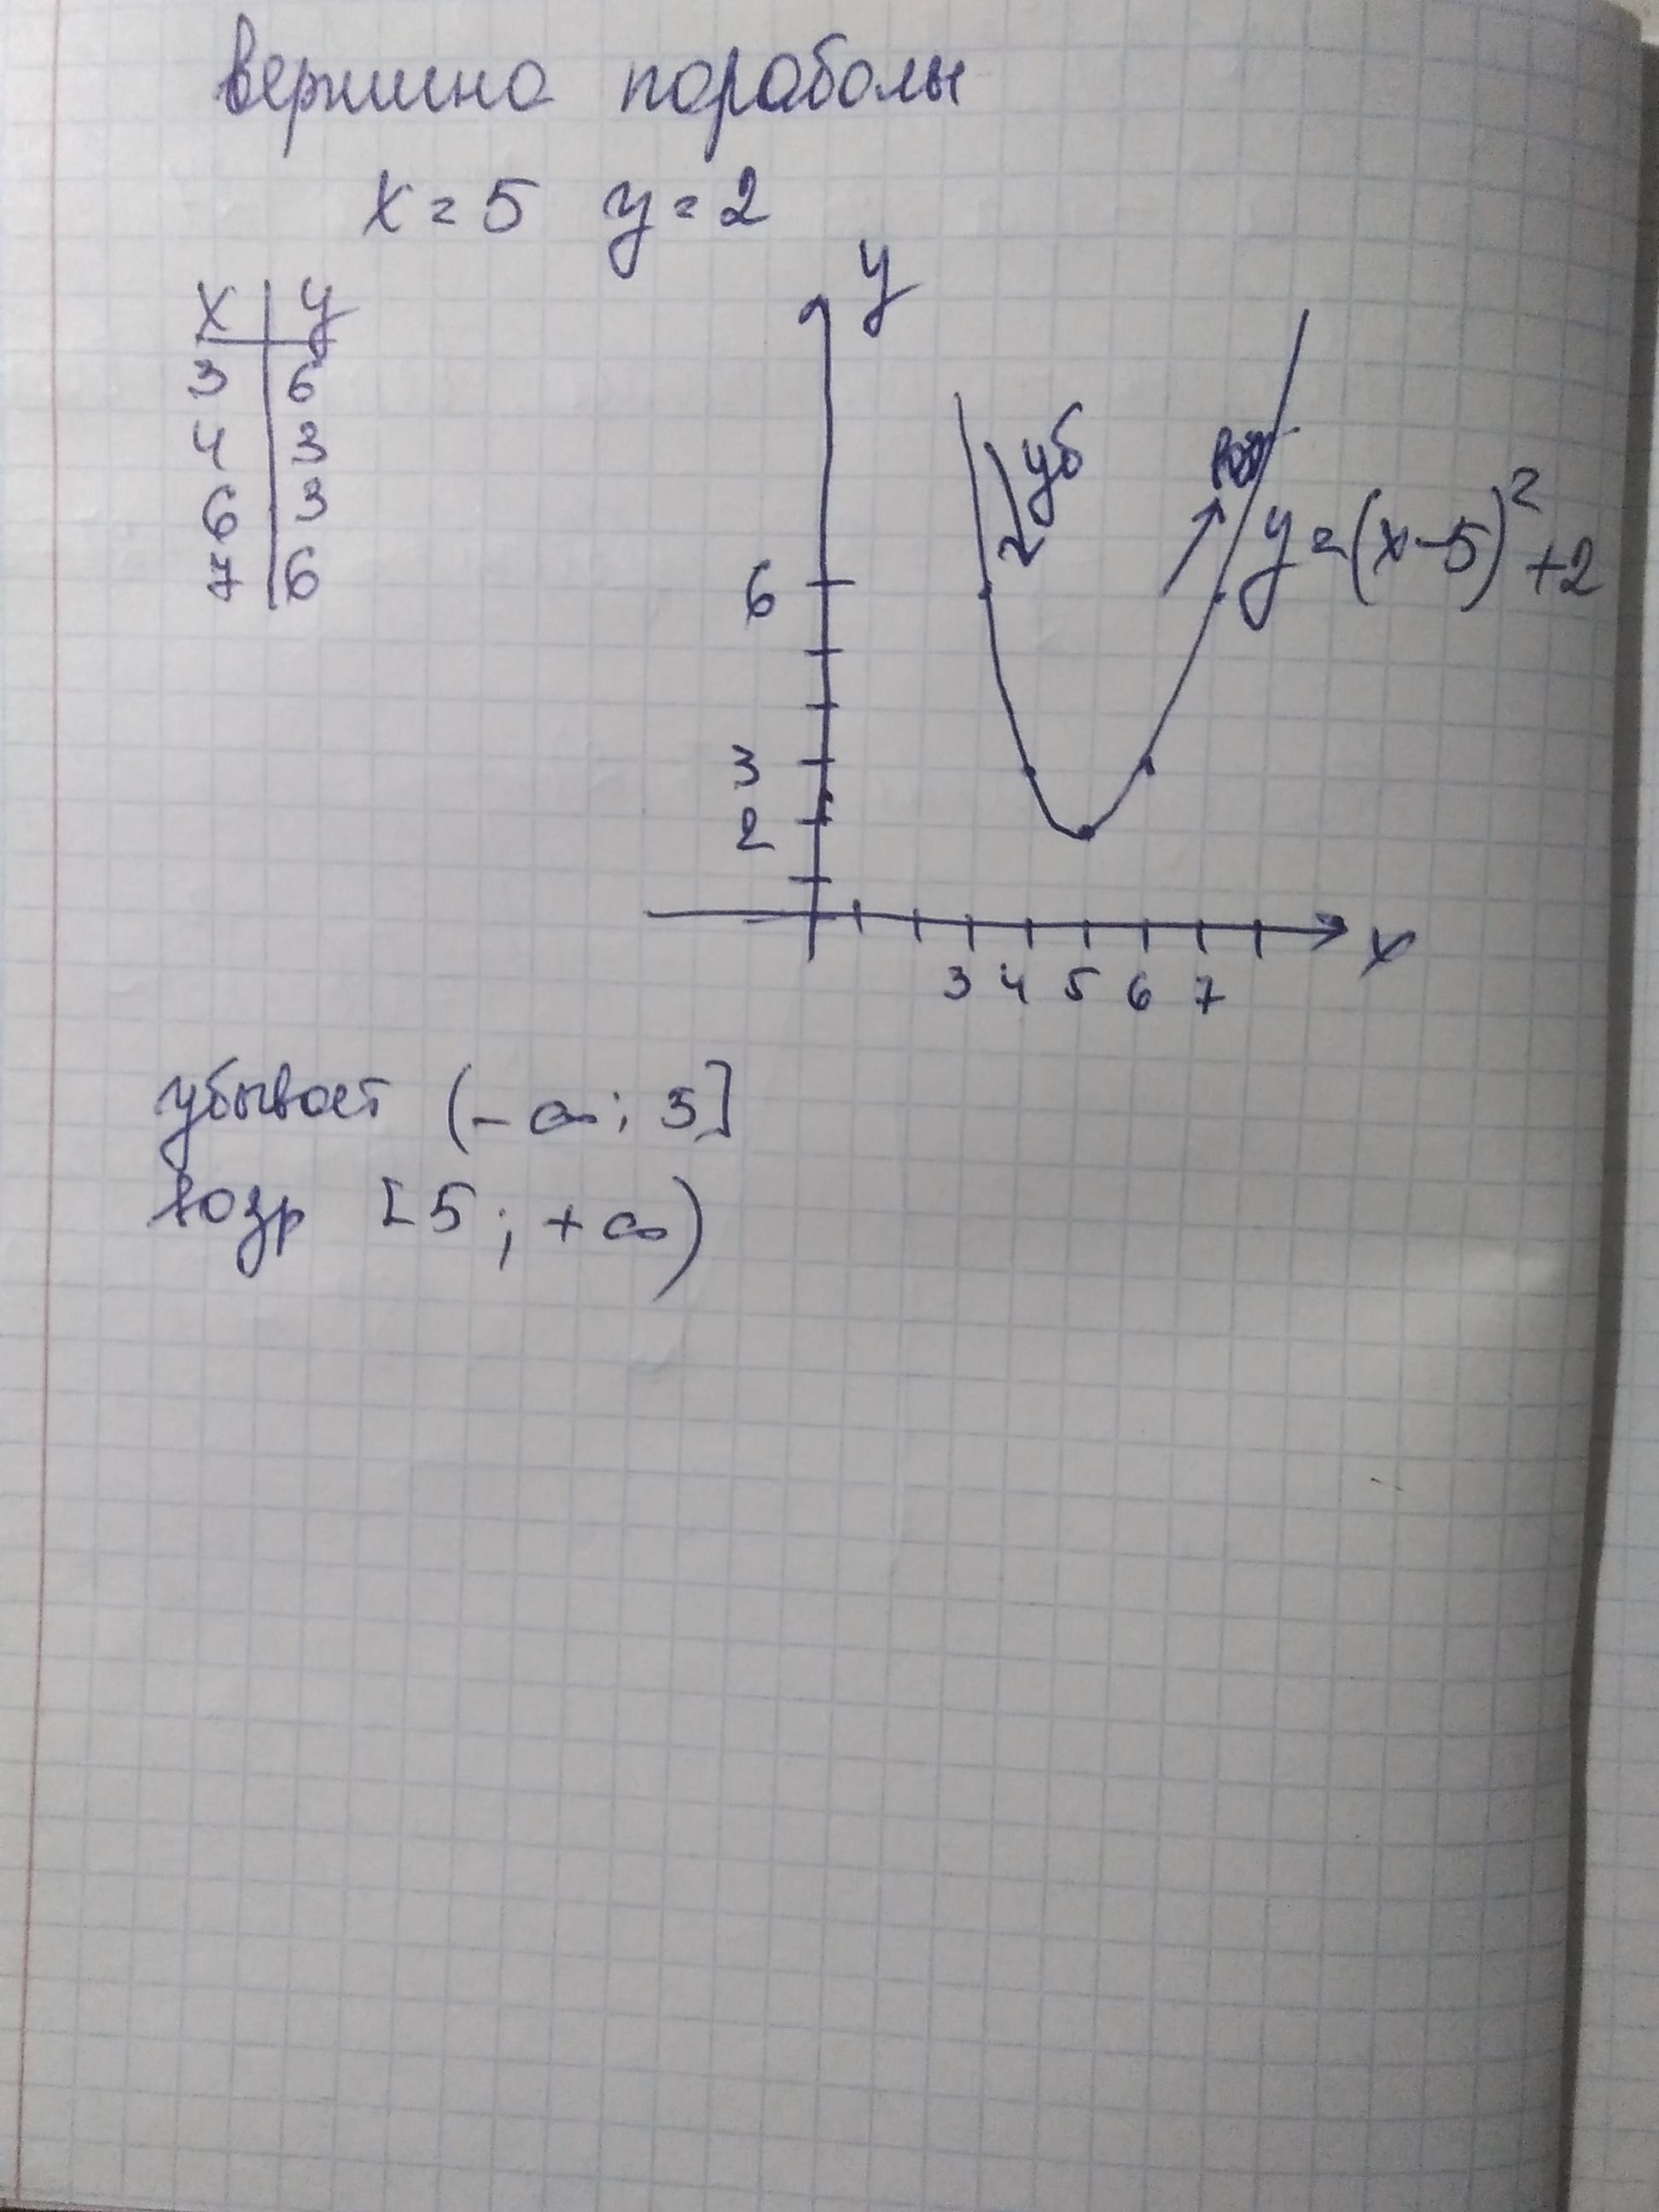 вершина параболы
x = 5 y = 2
x y
3 6
4 3
6 3
7 6
y
уб
y = (x-5)² + 2
6
3
2
3 4 5 6 7
x
убывает (-∞; 5]
возр [5; +∞)